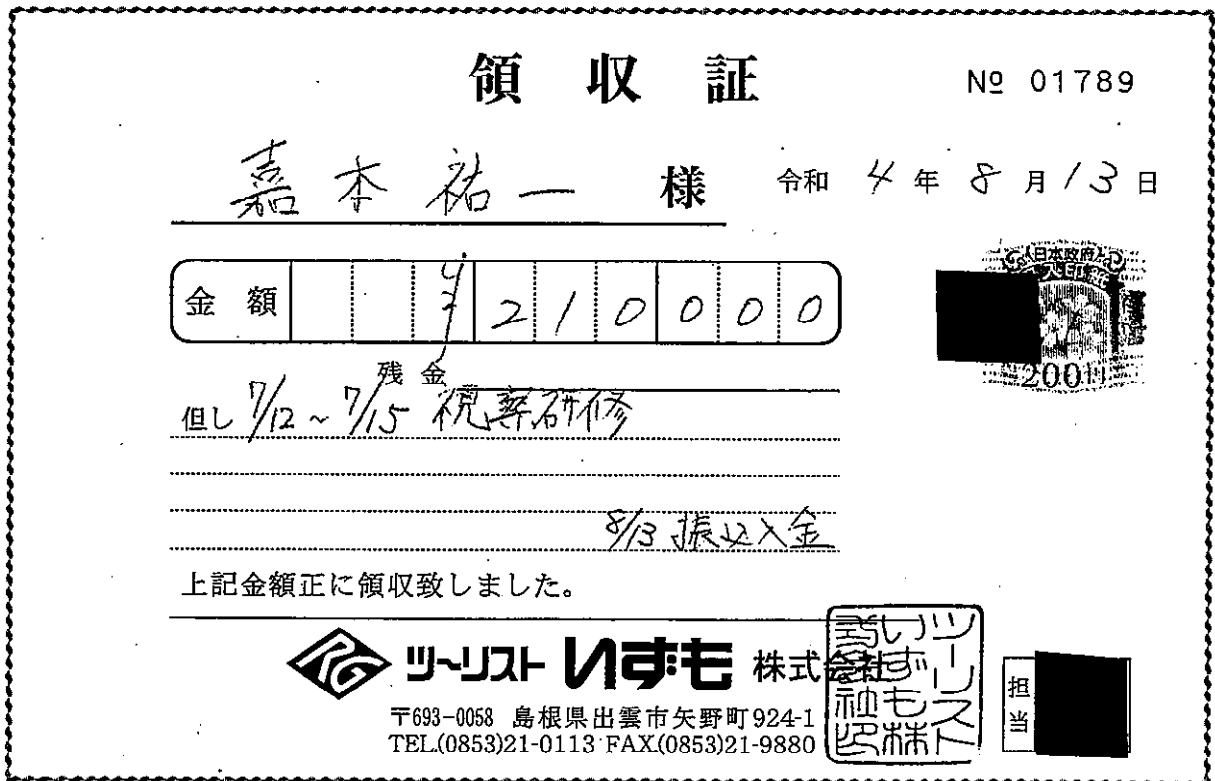 領収証
№ 01789
嘉本祐一 様
令和 4 年 8 月 13 日
金額 ¥210000
残金
但し 7/12~7/15 視察研修
8/13 振込入金
上記金額正に領収致しました。
RG ツ~リスト いずも 株式会社
〒693-0058 島根県出雲市矢野町924-1
TEL.(0853)21-0113 FAX.(0853)21-9880
ツーリスト
いずも株
式会社印
担当
日本政府
200